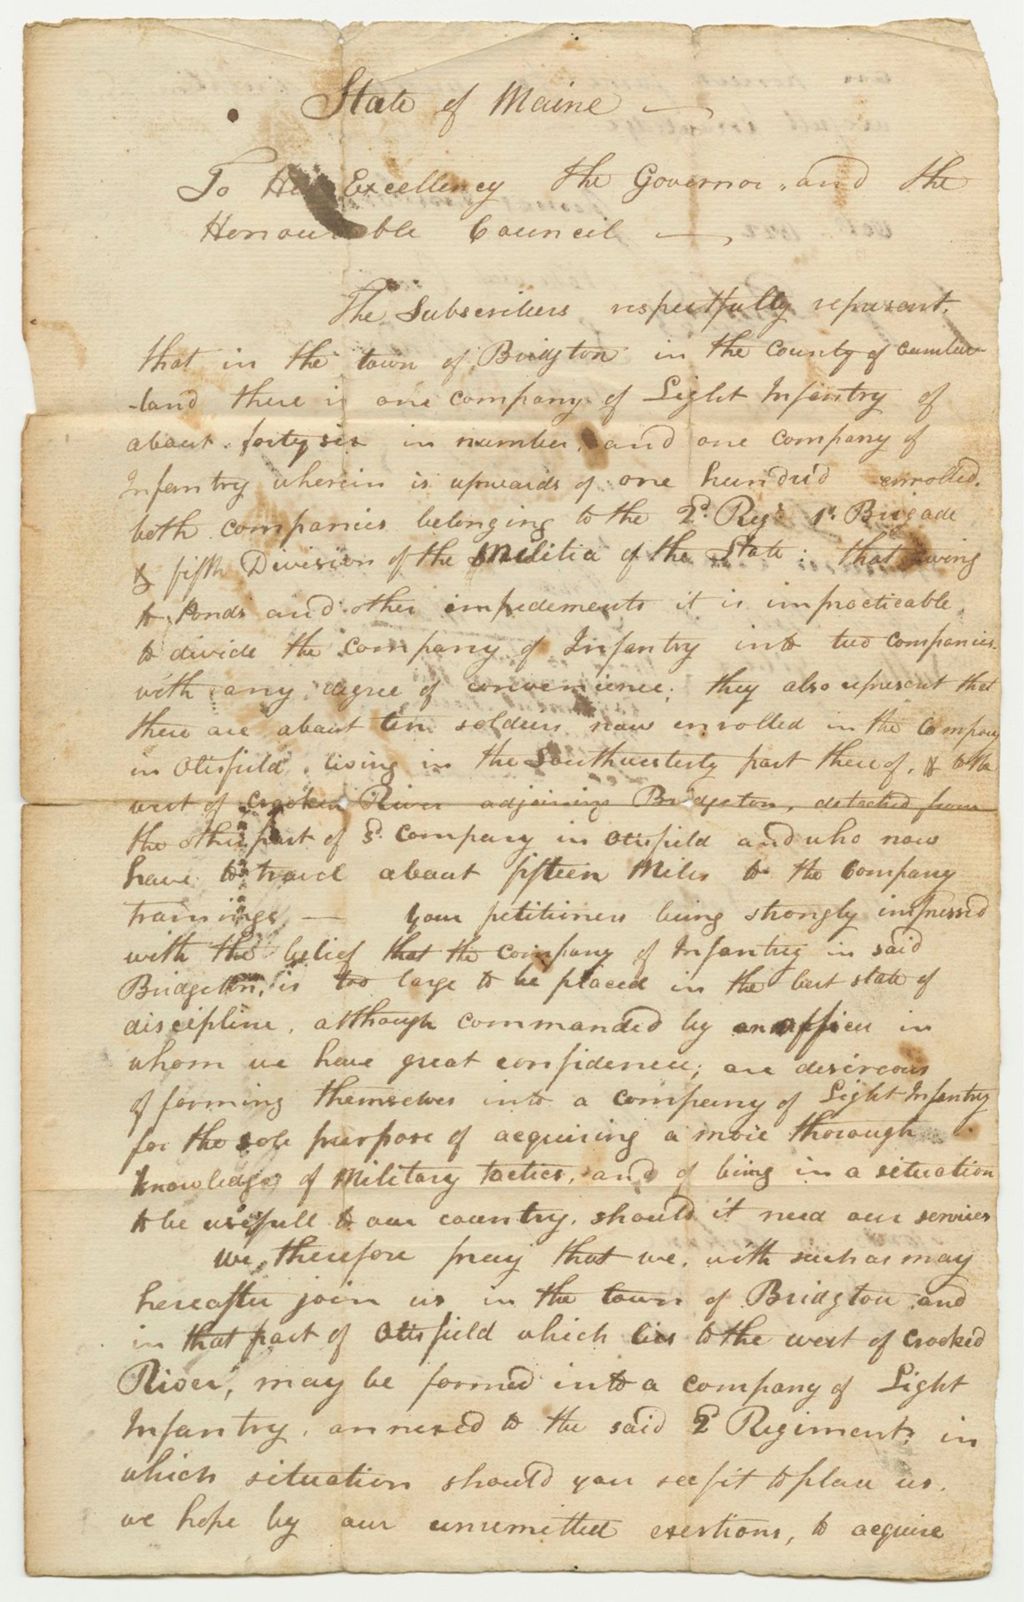 State of Maine
To His Excellency the Governor, and the
Honourable Council
The Subscribers respectfully represent,
that in the town of Bridgton in the County of Cumber-
-land there is one company of Light Infantry of
about forty six in number, and one company of
Infantry wherein is upwards of one hundr'd enrolled.
both companies belonging to the 2d. Regt. 1st. Brigade
& fifth Division of the Militia of the State: that owing
to Ponds and other impedements it is impracticable
to divide the Company of Infantry into two Companies.
with any degree of convenience; they also represent that
there are about ten soldiers now enrolled in the Company
in Otisfield, living in the Southwesterly part thereof, & to the
west of Crooked River adjoining Bridgeton, detached from
the other part of sd. Company in Otisfield and who now
have to travel about fifteen Miles to the Company
trainings — your petitioners being strongly impressed
with the belief that the Company of Infantry in said
Bridgeton, is too large to be placed in the best state of
discipline, although commanded by an officer in
whom we have great confidence; are desireous
of forming themselves into a company of Light Infantry
for the sole purpose of acquiring a more thorough
knowledge of Military tactics, and of being in a situation
to be usefull to our country, should it need our services
We, therefore pray that we, with such as may
hereafter join us in the town of Bridgton and
in that part of Otisfield which lies to the west of Crooked
River, may be formed into a company of Light
Infantry, annexed to the said 2d Regiment, in
which situation should you see fit to place us,
we hope by our unremitted exertions, to acquire